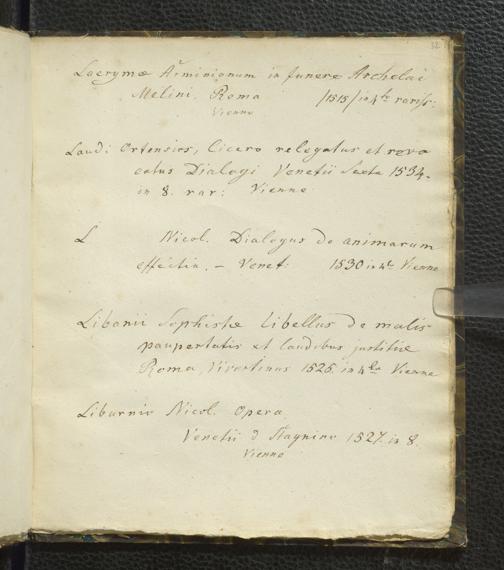 32
Lacrymæ Arminianum in funere Archelai
Melini. Roma /1515/ in 4to rariss:
Vienne
Landi Ortensios, Cicero relegatus et revo
catus Dialogi Venetii Sexta 1534.
in 8. rar: Vienne
L Nicol. Dialogus de animarum
effectia. – Venet: 1530 in 4to Vienne
Libanii Sophistæ libellus de malis
paupertatis et laudibus justitiæ
Roma, 1525. in 4to Vienne
Liburnio Nicol. Opera
Venetii d Stagnino 1527. in 8.
Vienne